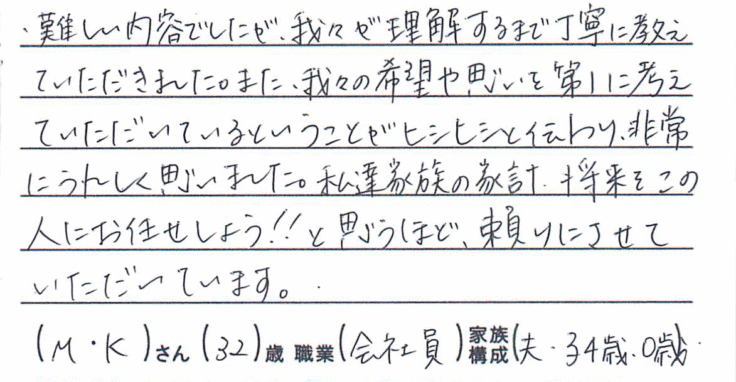 ・難しい内容でしたが、我々が理解するまで丁寧に教え
ていただきました。また、我々の希望や思いを第1に考え
ていただいているということがヒシヒシと伝わり、非常
にうれしく思いました。私達家族の家計、将来をこの
人にお任せしよう!!と思うほど、頼りにさせて
いただいています。
(M・K)さん(32)歳 職業(会社員)家族構成(夫・34歳・0歳)